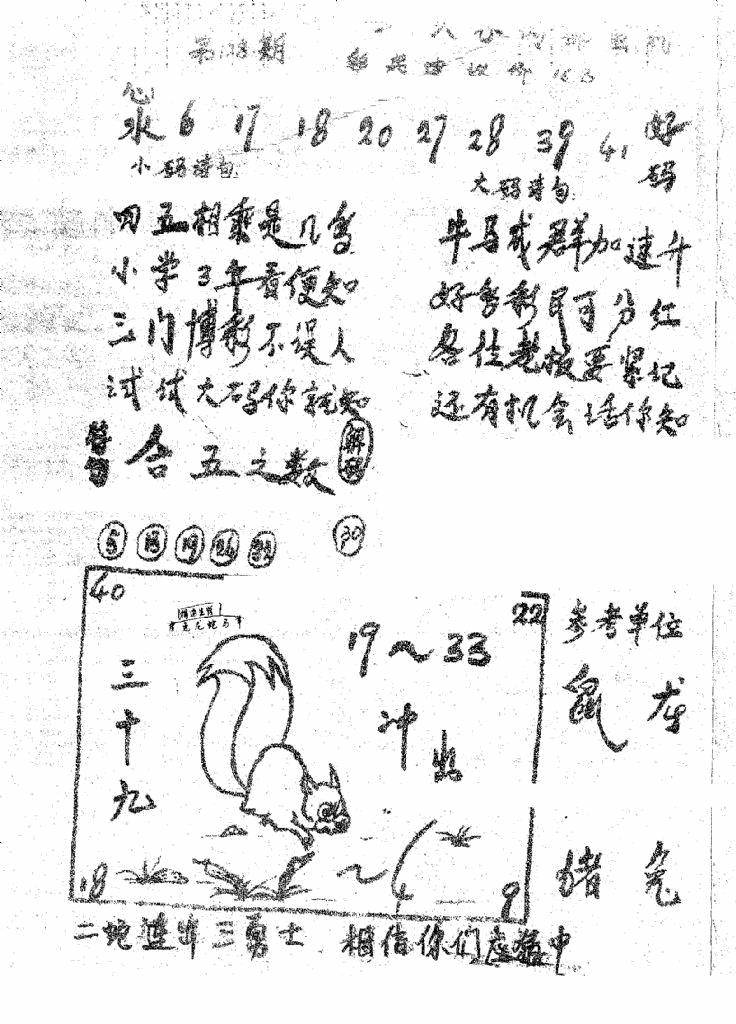 第128期
6 17 18 20 27 28 39 41 好码
小码诗句
四五相乘是几多
小学3年看便知
三门博彩不误人
试试大码你就知
大码诗句
牛马成群加速升
好多彩民可分红
各位老板要紧记
还有机会话你知
含五之数
解码
5 15 19 30
40
22
三十九
19~33
冲出
18
9
参考单位
鼠 龙
猪 兔
二蛇连出三勇士 相信你们